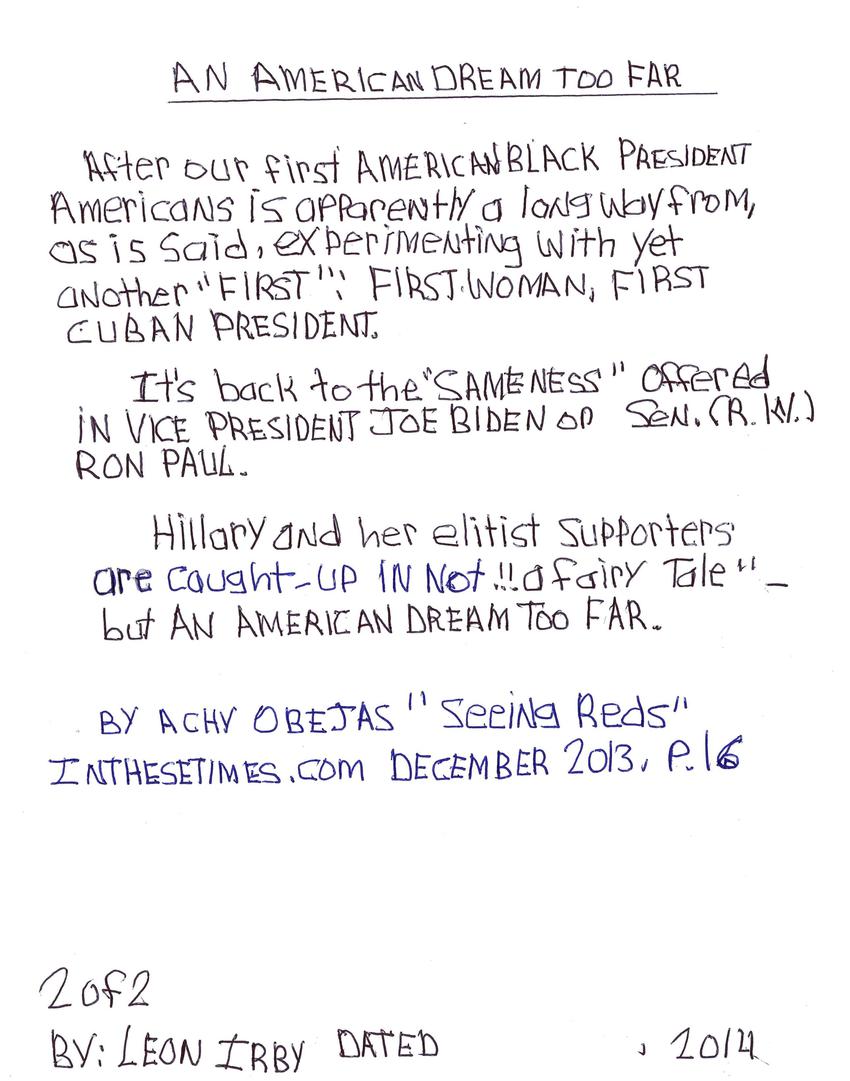 AN AMERICAN DREAM TOO FAR
After our first AMERICAN BLACK PRESIDENT
Americans is apparently a long way from,
as is said, experimenting with yet
another "FIRST": FIRST WOMAN, FIRST
CUBAN PRESIDENT.
It's back to the "SAMENESS" offered
IN VICE PRESIDENT JOE BIDEN OR SEN. (R. KY.)
RON PAUL.
Hillary and her elitist supporters
are caught-UP IN Not "a fairy Tale" -
but AN AMERICAN DREAM TOO FAR.
BY ACHY OBEJAS "Seeing Reds"
INTHESETIMES.COM DECEMBER 2013, P.16
2 of 2
BY: LEON IRBY DATED , 2014